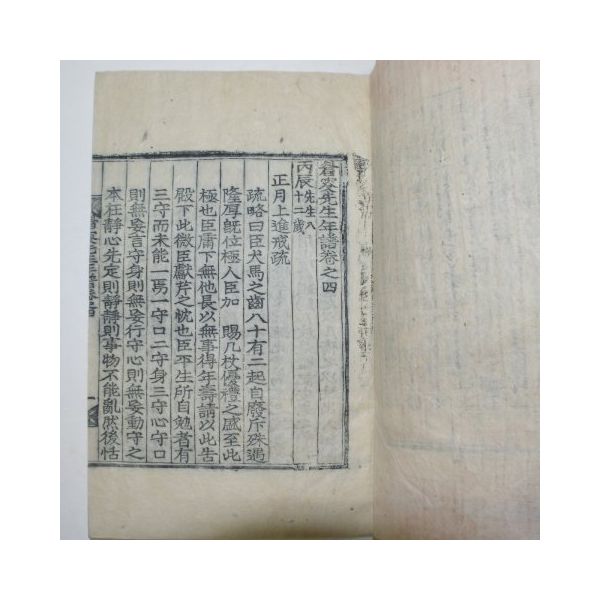 眉叟先生年譜卷之四
丙辰先生八十二歲
正月上進戒疏
疏略曰臣犬馬之齒八十有二起自廢斥殊遇
隆厚旣位極人臣加 賜几杖優禮之盛至此
極也臣庸下無他長以無事得年壽請以此告
殿下此微臣獻芹之忱也臣平生所自勉者有
三守而未能一焉一守口二守身三守心守口
則無妄言守身則無妄行守心則無妄動守之
本在靜心先定則靜靜則事物不能亂然後恬